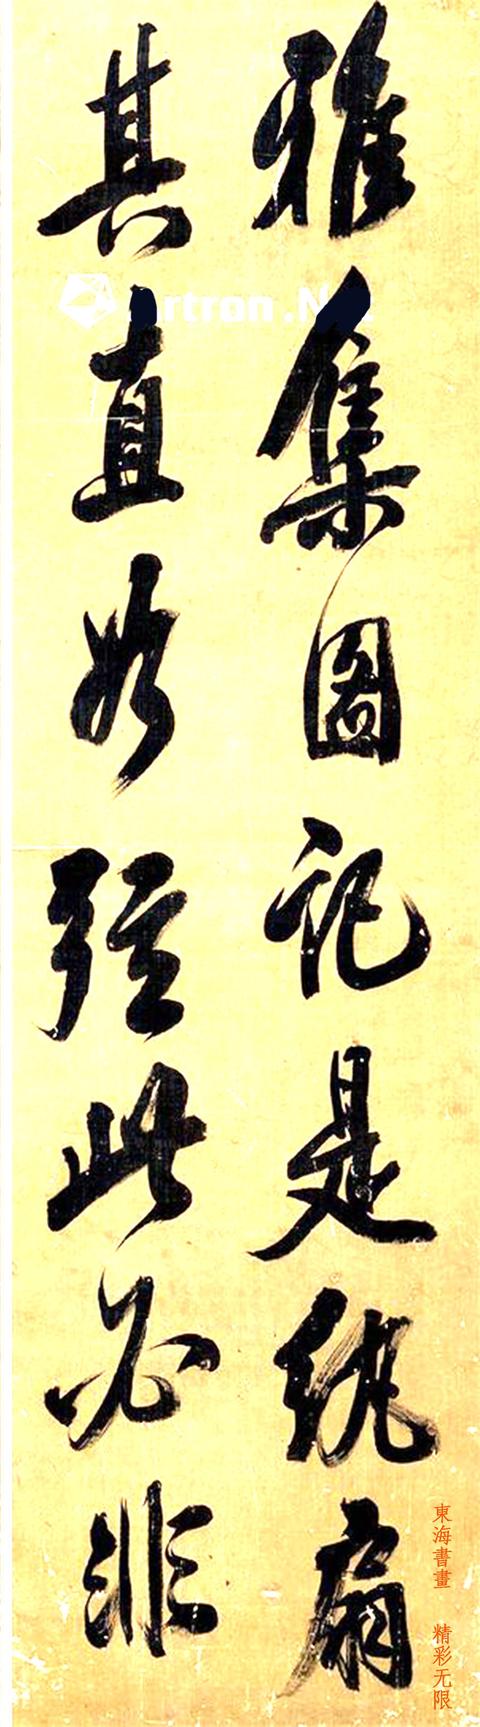 雅集圖記是紈扇
其直如弦此必非
東海書畫 精彩无限